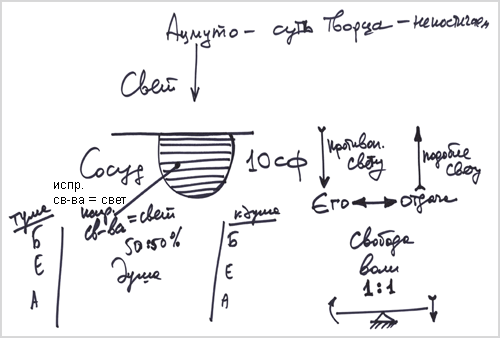 Ацмуто - суть Творца - непостижен
Свет
Сосуд
10 сф
противоп.
свету
подобие
свету
испр.
св-ва = свет
испр.
св-ва = свет
50:50%
Душа
Эго
отдача
тума
Б
Е
А
кдуша
Б
Е
А
Свобода
воли
1:1